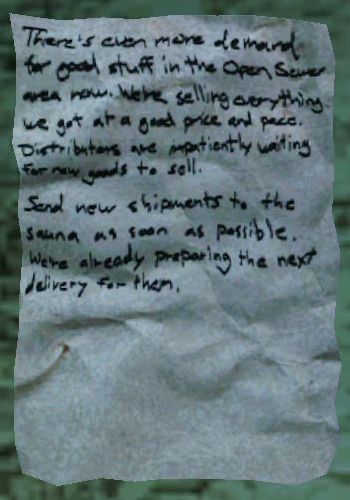 There's even more demand
for good stuff in the Open Sewer
area now. We're selling everything
we got at a good price and pace.
Distributors are impatiently waiting
for new goods to sell.
Send new shipments to the
sauna as soon as possible.
We're already preparing the next
delivery for them.